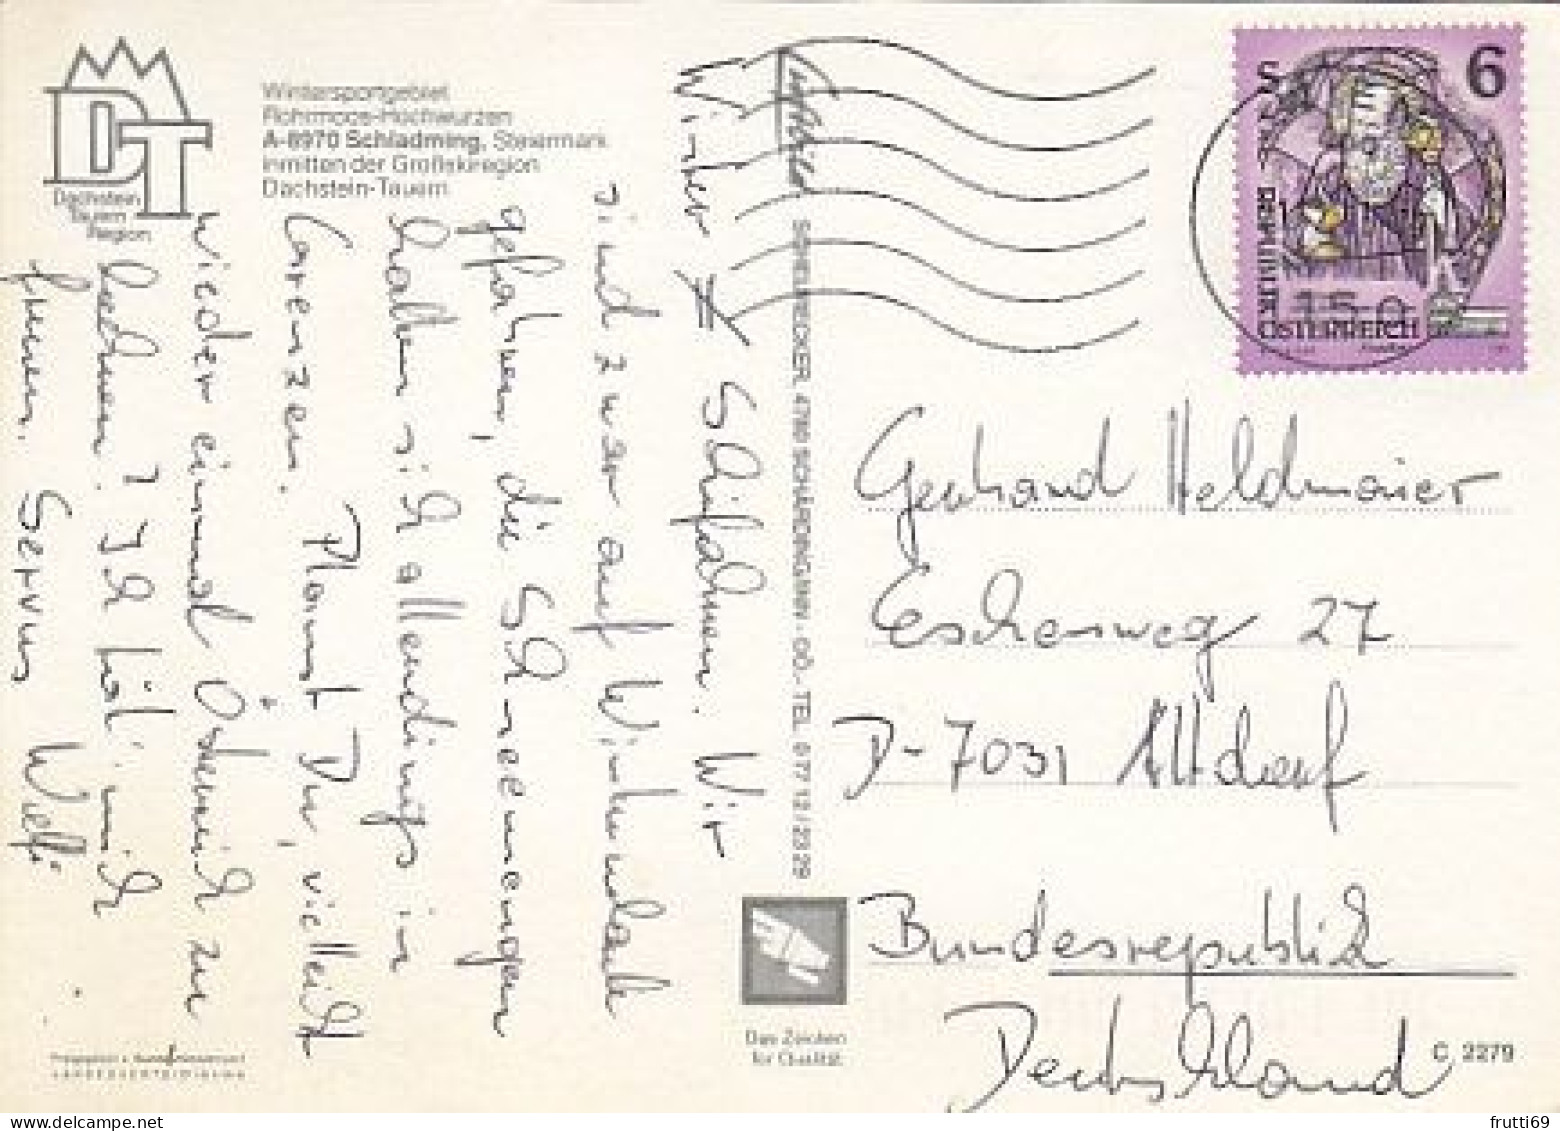 DT
Dachstein
Tauern
Region
Wintersportgebiet
Rohrmoos-Hochwurzen
A-8970 Schladming, Steiermark
inmitten der Großskiregion
Dachstein-Tauern
Schifahren. Wir
sind zwar auf Winterurlaub
gefahren, die Schneemengen
halten sich allerdings in
Grenzen. Planst Du, vielleicht
wieder einmal Österreich zu
? Ich tät mich
freuen. Servus
SCHEURECKER, 4780 SCHÄRDING/INN - OÖ - TEL. 0 77 12 / 23 29
Das Zeichen
für Qualität.
S 6
REPUBLIK
ÖSTERREICH
Gerhard Heldmaier
Eschenweg 27
D-7031 Altdorf
Bundesrepublik
Deutschland
C 2279
LANDESVERTEIDIGUNG
frutti69